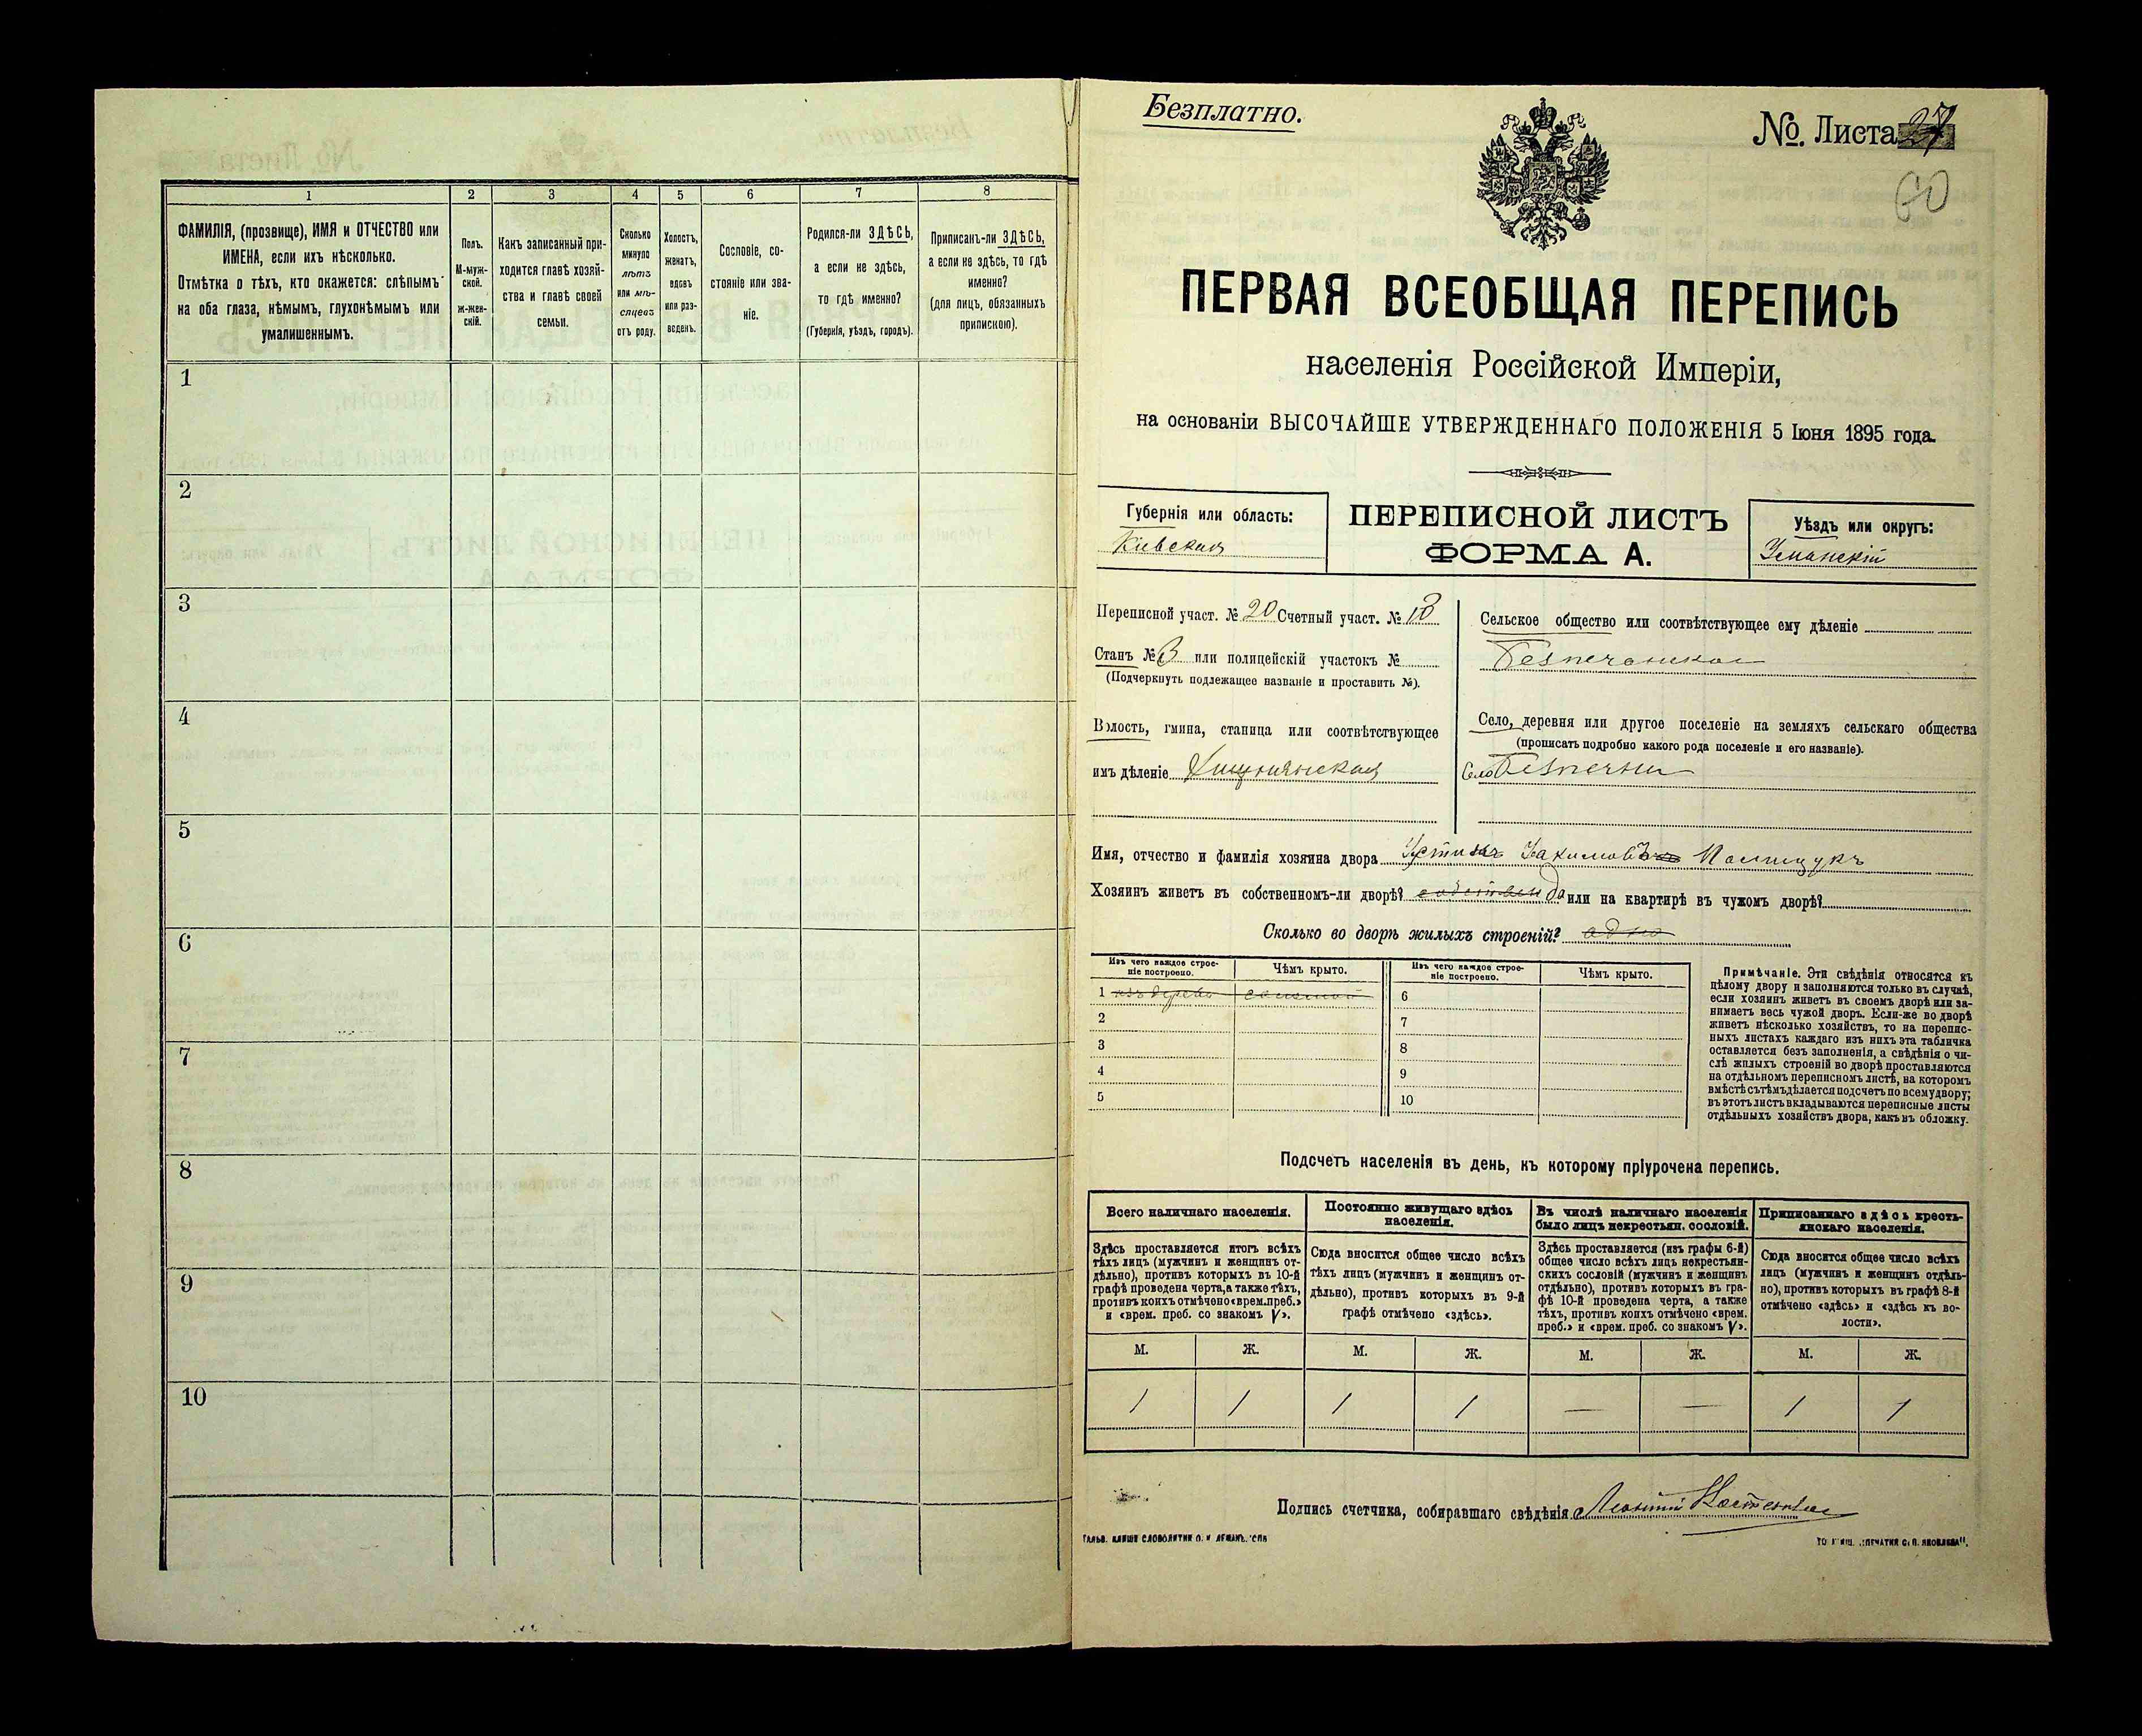 1
2
3
4
5
6
7
8
ФАМИЛІЯ, (прозвище), ИМЯ и ОТЧЕСТВО или
ИМЕНА, если ихъ нѣсколько.
Отмѣтка о тѣхъ, кто окажется: слѣпымъ
на оба глаза, нѣмымъ, глухонѣмымъ или
умалишеннымъ.
Полъ.
М-муж-
ской.
ж-жен-
скій.
Какъ записанный при-
ходится главѣ хозяй-
ства и главѣ своей
семьи.
Сколько
минуло
лѣтъ
или мѣ-
сяцевъ
отъ роду.
Холостъ,
женатъ,
вдовъ
или раз-
веденъ.
Сословіе, со-
стояніе или зва-
ніе.
Родился-ли ЗДѢСЬ,
а если не здѣсь,
то гдѣ именно?
(Губернія, уѣздъ, городъ).
Приписанъ-ли ЗДѢСЬ,
а если не здѣсь, то гдѣ
именно?
(для лицъ, обязанныхъ
припискою).
1
2
3
4
5
6
7
8
9
10
Безплатно.
№. Листа 27
60
ПЕРВАЯ ВСЕОБЩАЯ ПЕРЕПИСЬ
населенія Россійской Имперіи,
на основаніи ВЫСОЧАЙШЕ УТВЕРЖДЕННАГО ПОЛОЖЕНІЯ 5 Іюня 1895 года.
Губернія или область:
Кіевская
ПЕРЕПИСНОЙ ЛИСТЪ
ФОРМА А.
Уѣздъ или округъ:
Уманскій
Переписной участ. № 20 Счетный участ. № 18
Станъ № 3 или полицейскій участокъ №
(Подчеркнуть подлежащее названіе и проставить №).
Волость, гмина, станица или соотвѣтствующее
имъ дѣленіе
Сельское общество или соотвѣтствующее ему дѣленіе
Безпечанское
Село, деревня или другое поселеніе на земляхъ сельскаго общества
(прописать подробно какого рода поселеніе и его названіе).
Село Безпечни
Имя, отчество и фамилія хозяина двора
Хозяинъ живетъ въ собственномъ-ли дворѣ? да или на квартирѣ въ чужомъ дворѣ?
Сколько во дворѣ жилыхъ строеній? одно
Изъ чего каждое строе-
ніе построено.
Чѣмъ крыто.
Изъ чего каждое строе-
ніе построено.
Чѣмъ крыто.
1 изъ дерева соломой
2
3
4
5
6
7
8
9
10
Примѣчаніе. Эти свѣдѣнія относятся къ
цѣлому двору и заполняются только въ случаѣ,
если хозяинъ живетъ въ своемъ дворѣ или за-
нимаетъ весь чужой дворъ. Если-же во дворѣ
живетъ нѣсколько хозяйствъ, то на перепис-
ныхъ листахъ каждаго изъ нихъ эта табличка
оставляется безъ заполненія, а свѣдѣнія о чи-
слѣ жилыхъ строеній во дворѣ проставляются
на отдѣльномъ переписномъ листѣ, на которомъ
вмѣстѣ съ тѣмъ дѣлается подсчетъ по всему двору;
въ этотъ листъ вкладываются переписные листы
отдѣльныхъ хозяйствъ двора, какъ въ обложку.
Подсчетъ населенія въ день, къ которому пріурочена перепись.
Всего наличнаго населенія.
Постоянно живущаго здѣсь
населенія.
Въ числѣ наличнаго населенія
было лицъ некрестьян. сословій.
Приписаннаго здѣсь кресть-
янскаго населенія.
Здѣсь проставляется итогъ всѣхъ
тѣхъ лицъ (мужчинъ и женщинъ от-
дѣльно), противъ которыхъ въ 10-й
графѣ проведена черта, а также тѣхъ,
противъ коихъ отмѣчено «врем. преб.»
и «врем. преб. со знакомъ V».
Сюда вносится общее число всѣхъ
тѣхъ лицъ (мужчинъ и женщинъ от-
дѣльно), противъ которыхъ въ 9-й
графѣ отмѣчено «здѣсь».
Здѣсь проставляется (изъ графы 6-й)
общее число всѣхъ лицъ некрестьян-
скихъ сословій (мужчинъ и женщинъ
отдѣльно), противъ которыхъ въ гра-
фѣ 10-й проведена черта, а также
тѣхъ, противъ коихъ отмѣчено «врем.
преб.» и «врем. преб. со знакомъ V».
Сюда вносится общее число всѣхъ
лицъ (мужчинъ и женщинъ отдѣль-
но), противъ которыхъ въ графѣ 8-й
отмѣчено «здѣсь» и «здѣсь къ во-
лости».
М. Ж. М. Ж. М. Ж. М. Ж.
1 1 1 1 — — 1 1
Подпись счетчика, собиравшаго свѣдѣнія